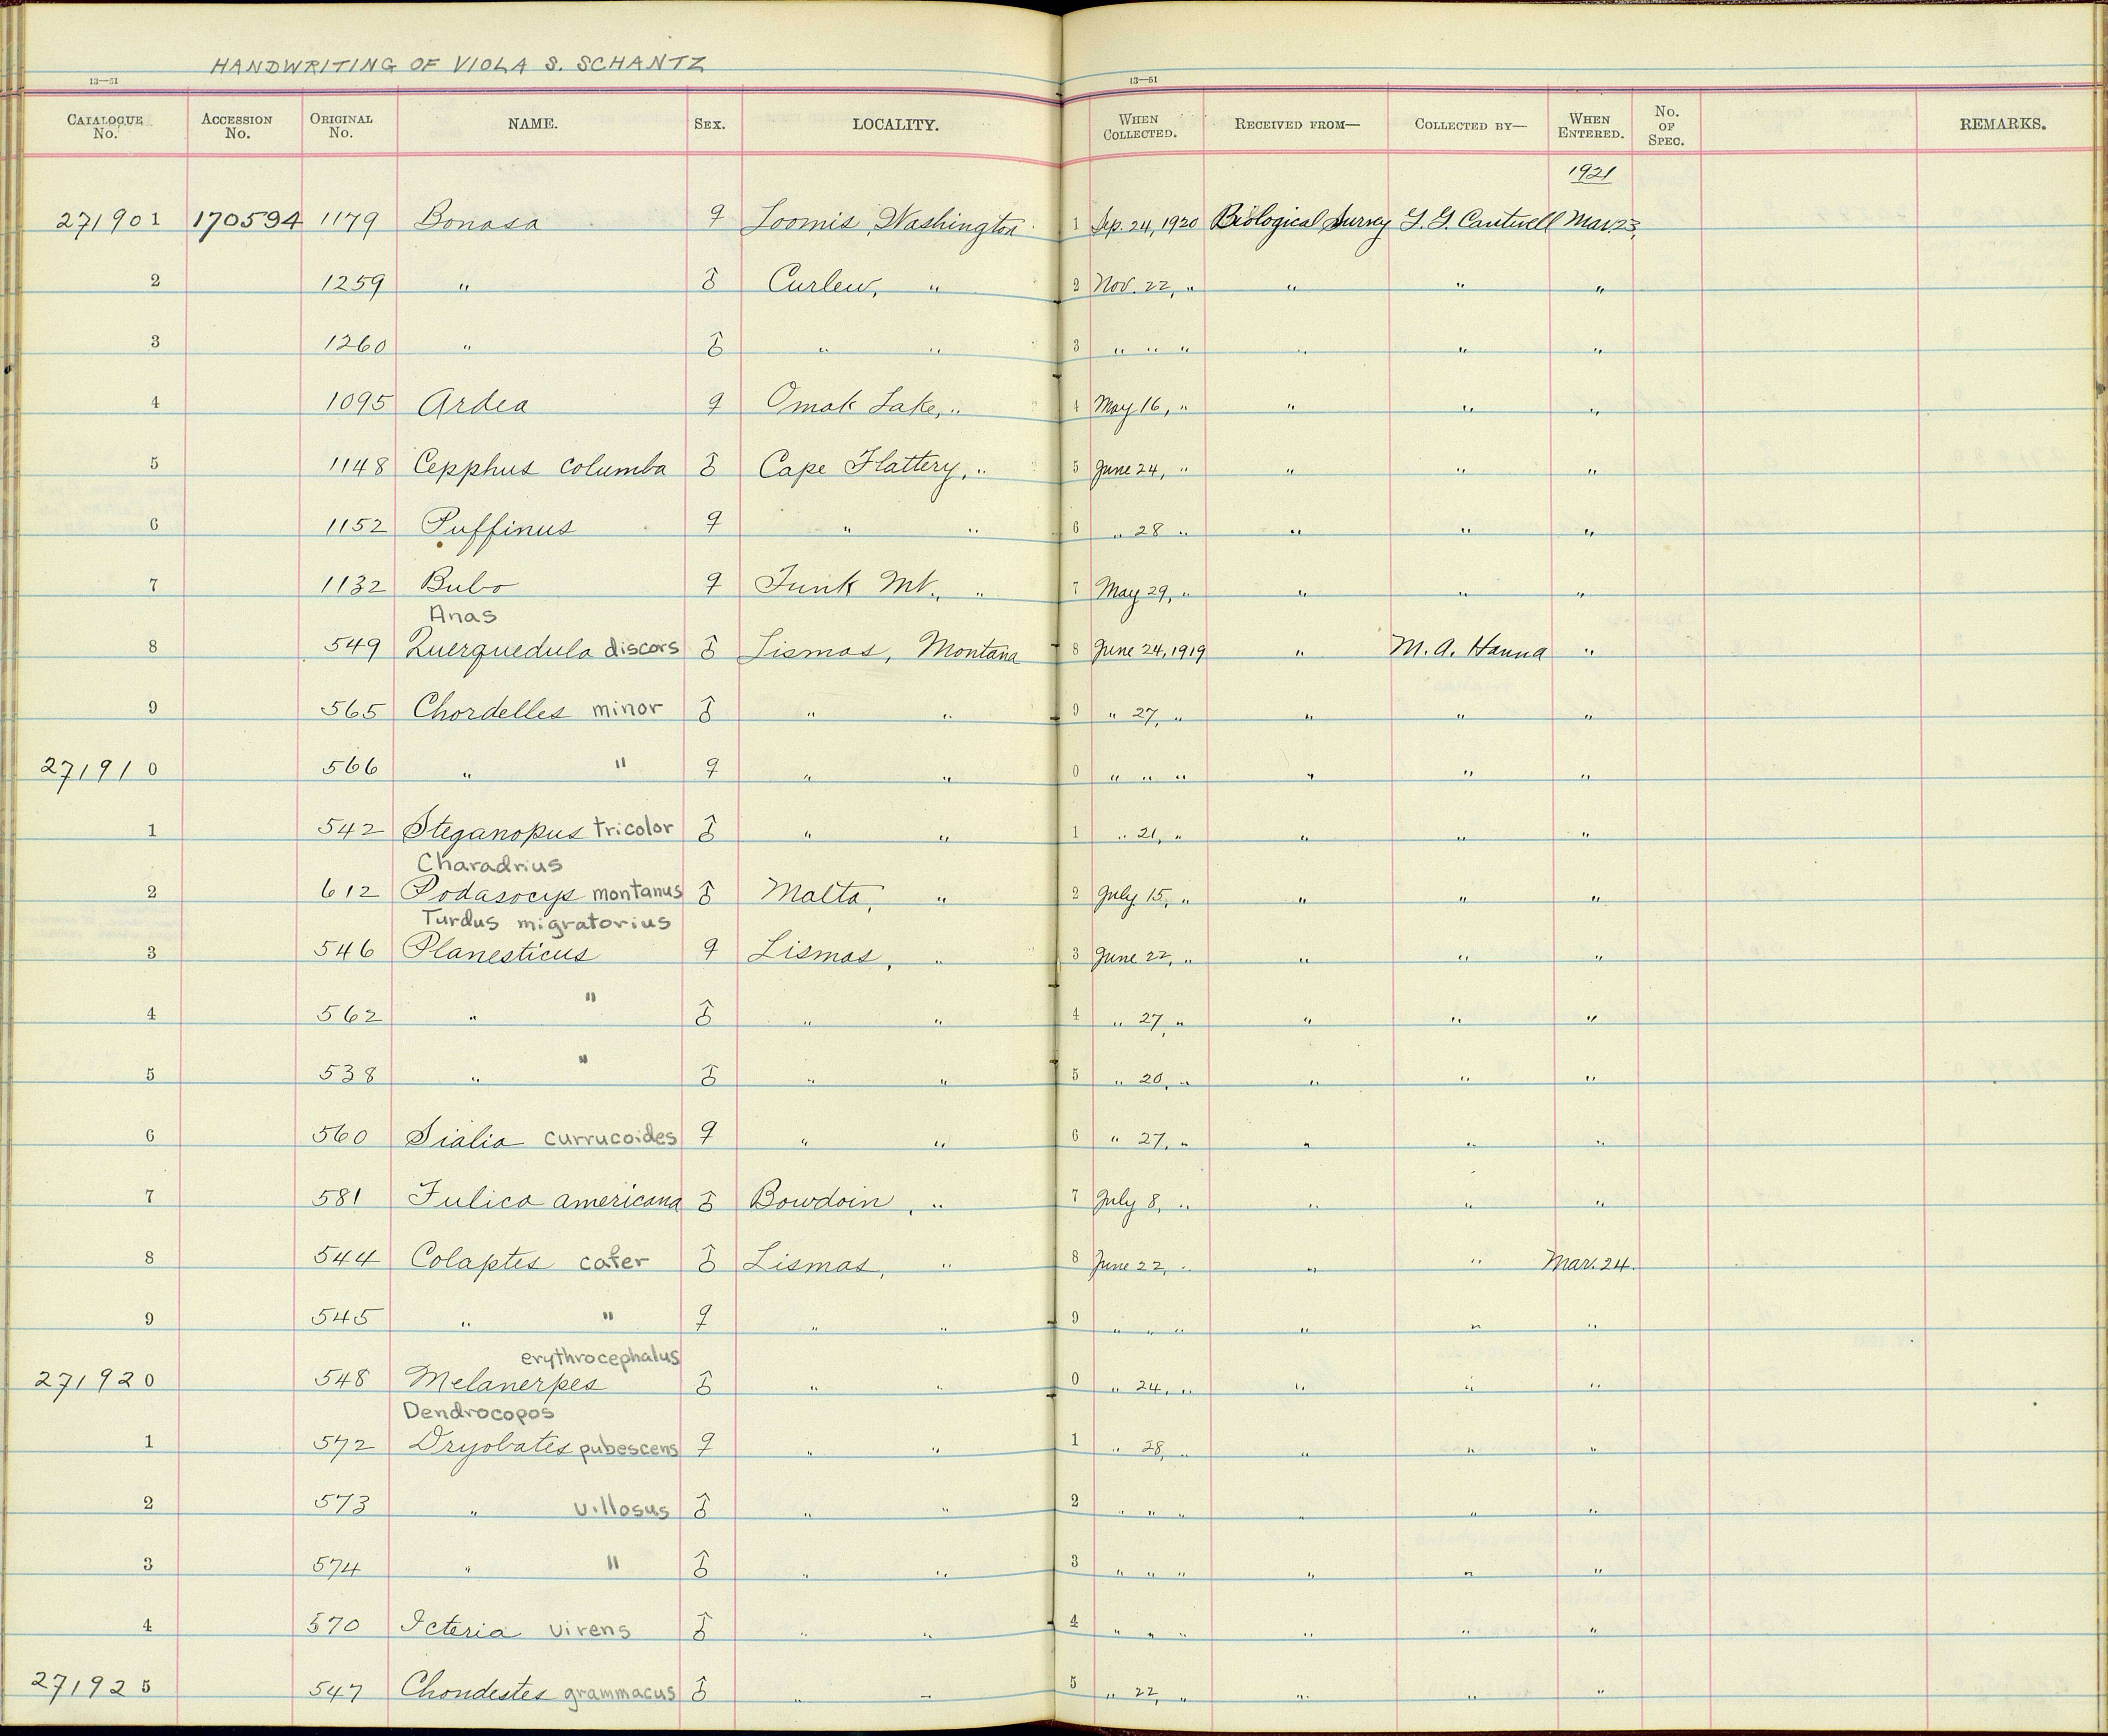 HANDWRITING OF VIOLA S. SCHANTZ
13—51 13—51
CATALOGUE No. ACCESSION No. ORIGINAL No. NAME. SEX. LOCALITY. WHEN COLLECTED. RECEIVED FROM— COLLECTED BY— WHEN ENTERED. No. OF SPEC. REMARKS.
1921
271901 170594 1179 Bonasa ♀ Loomis, Washington 1 Sep. 24, 1920 Biological Survey G. G. Cantwell Mar. 23,
2 1259 " ♂ Curlew, " 2 Nov. 22, " " " "
3 1260 " ♂ " " 3 " " " " " "
4 1095 Ardea ♀ Omak Lake, " 4 May 16, " " " "
5 1148 Cepphus columba ♂ Cape Flattery, " 5 June 24, " " " "
6 1152 Puffinus ♀ " " 6 " 28 " " " "
7 1132 Bubo ♀ Funk Mt., " 7 May 29, " " " "
Anas
8 549 Querquedula discors ♂ Lismas, Montana 8 June 24, 1919 " M. A. Hanna "
9 565 Chordelles minor ♂ " " 9 " 27, " " " "
271910 566 " " ♀ " " 0 " " " " " "
1 542 Steganopus tricolor ♂ " " 1 " 21, " " " "
Charadrius
2 612 Podasocys montanus ♂ Malta, " 2 July 15, " " " "
Turdus migratorius
3 546 Planesticus ♀ Lismas, " 3 June 22, " " " "
4 562 " " ♂ " " 4 " 27, " " " "
5 538 " " ♂ " " 5 " 20, " " " "
6 560 Sialia currucoides ♀ " " 6 " 27, " " " "
7 581 Fulica americana ♂ Bowdoin, " 7 July 8, " " " "
8 544 Colaptes cafer ♂ Lismas, " 8 June 22, " " " Mar. 24.
9 545 " " ♀ " " 9 " " " " " "
erythrocephalus
271920 548 Melanerpes ♂ " " 0 " 24, " " " "
Dendrocopos
1 572 Dryobates pubescens ♀ " " 1 " 28, " " " "
2 573 " villosus ♂ " " 2 " " " " " "
3 574 " " ♂ " " 3 " " " " " "
4 570 Icteria virens ♂ " " 4 " " " " " "
271925 547 Chondestes grammacus ♂ " " 5 " 22, " " " "